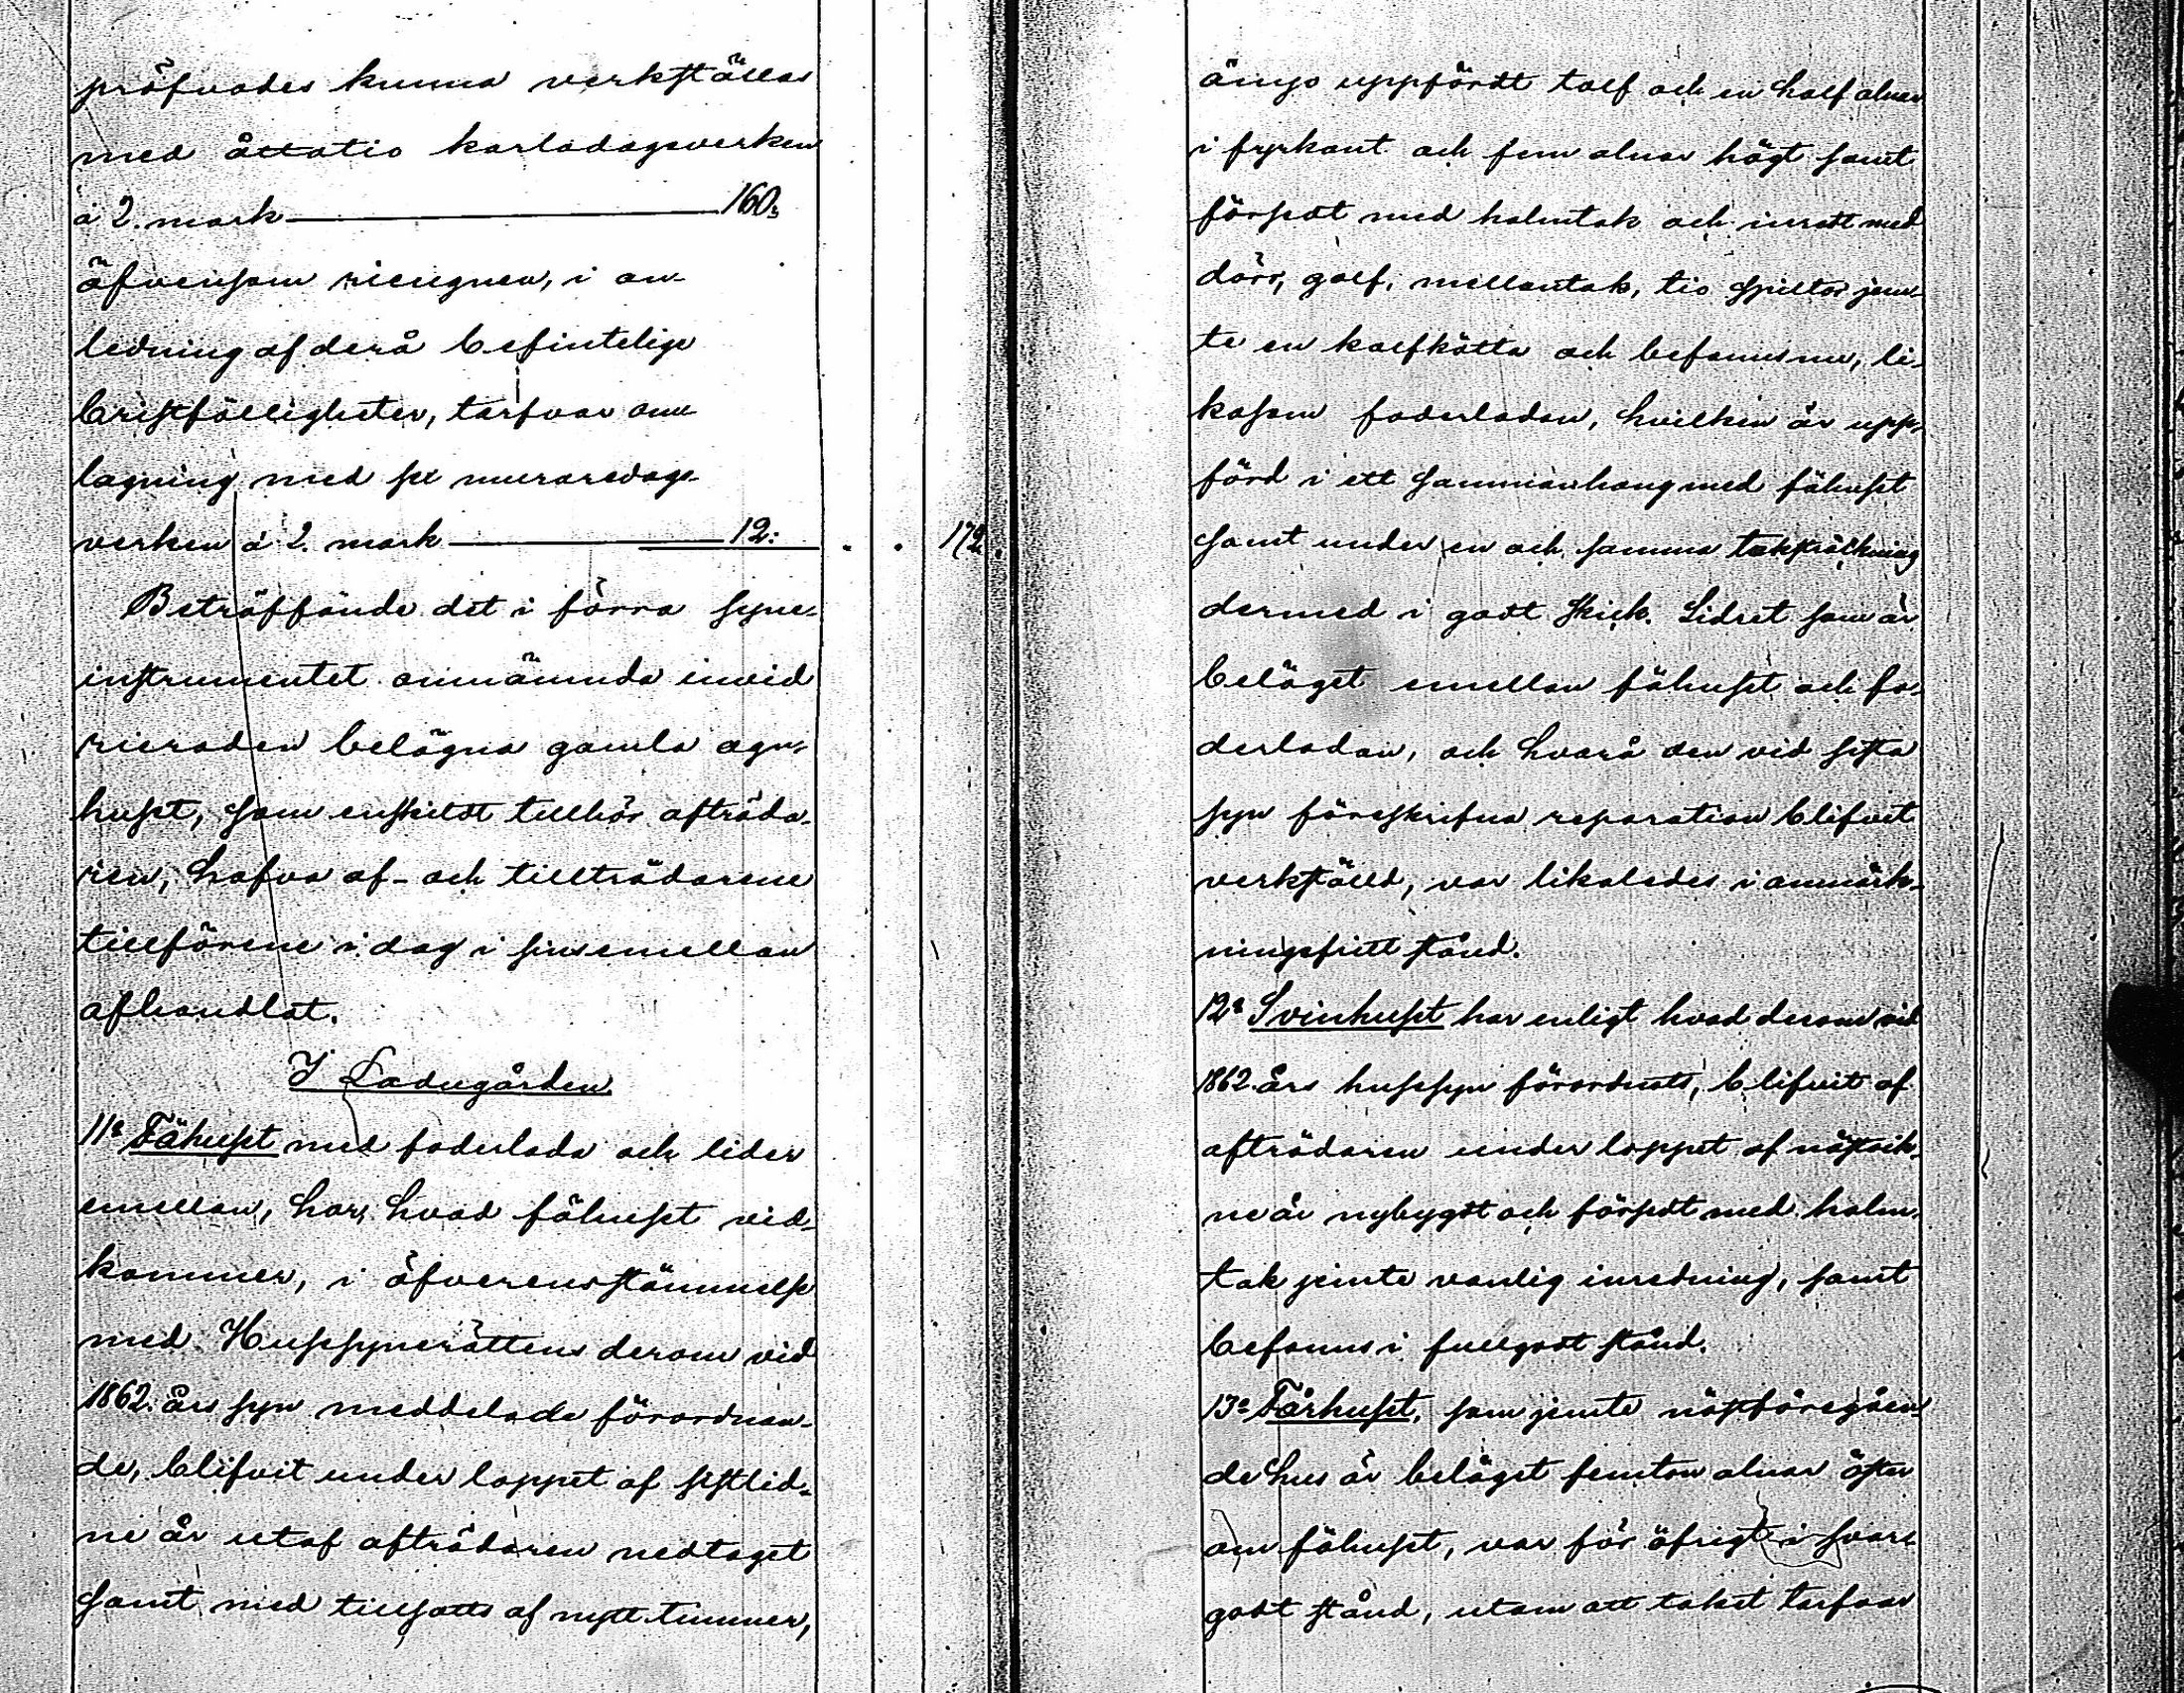 pröfvades kunna verkställas
med åttatio karladagsverken
à 2. mark 160:
äfvensom rieugnen, i an-
ledning af derå befintelige
bristfälligheter, tarfvar om-
lagning med sex muraredags-
verken à 2. mark 12: . . 172.
Beträffande det i förra syne-
instrumentet omnämnda invid
rieraden belägna gamla agn-
huset, som enskildt tillhör afträda-
ren, hafva af- och tillträdarene
tillförene i dag i sinsemellan
afhandlat.
I Ladugården.
11o Fähuset med foderlada och lider
emellan, har, hvad fähuset vid-
kommer, i öfverensstämmelse
med Hussynerättens derom vid
1862. års syn meddelade förordnan-
de, blifvit under loppet af sistlid-
ne år utaf afträdaren nedtaget
samt med tillsatts af nytt timmer,
ånyo uppfördt tolf och en half alnar
i fyrkant och fem alnar högt samt
försedt med halmtak och inredt med
dörr, golf, mellantak, tio spiltor jem-
te en kalfkätta och befanns nu, li-
kasom foderladan, hvilken är upp-
förd i ett sammanhang med fähuset
samt under en och samma taksträckning
dermed i godt skick. Lidret som är
beläget emellan fähuset och fo-
derladan, och hvarå den vid sista
syn föreskrifna reparation blifvit
verkställd, var likaledes i anmärk-
ningsfritt stånd.
12o Svinhuset har enligt hvad derom vid
1862. års hussyn förordnats, blifvit af
afträdaren under loppet af nästvik-
ne år nybygdt och försedt med halm-
tak jemte vanlig inredning, samt
befanns i fullgodt stånd.
13o Fårhuset, som jemte nästföregåen-
de hus är beläget femton alnar öster
om fähuset, var för öfrigt i svars-
godt stånd, utom att taket tarfvar